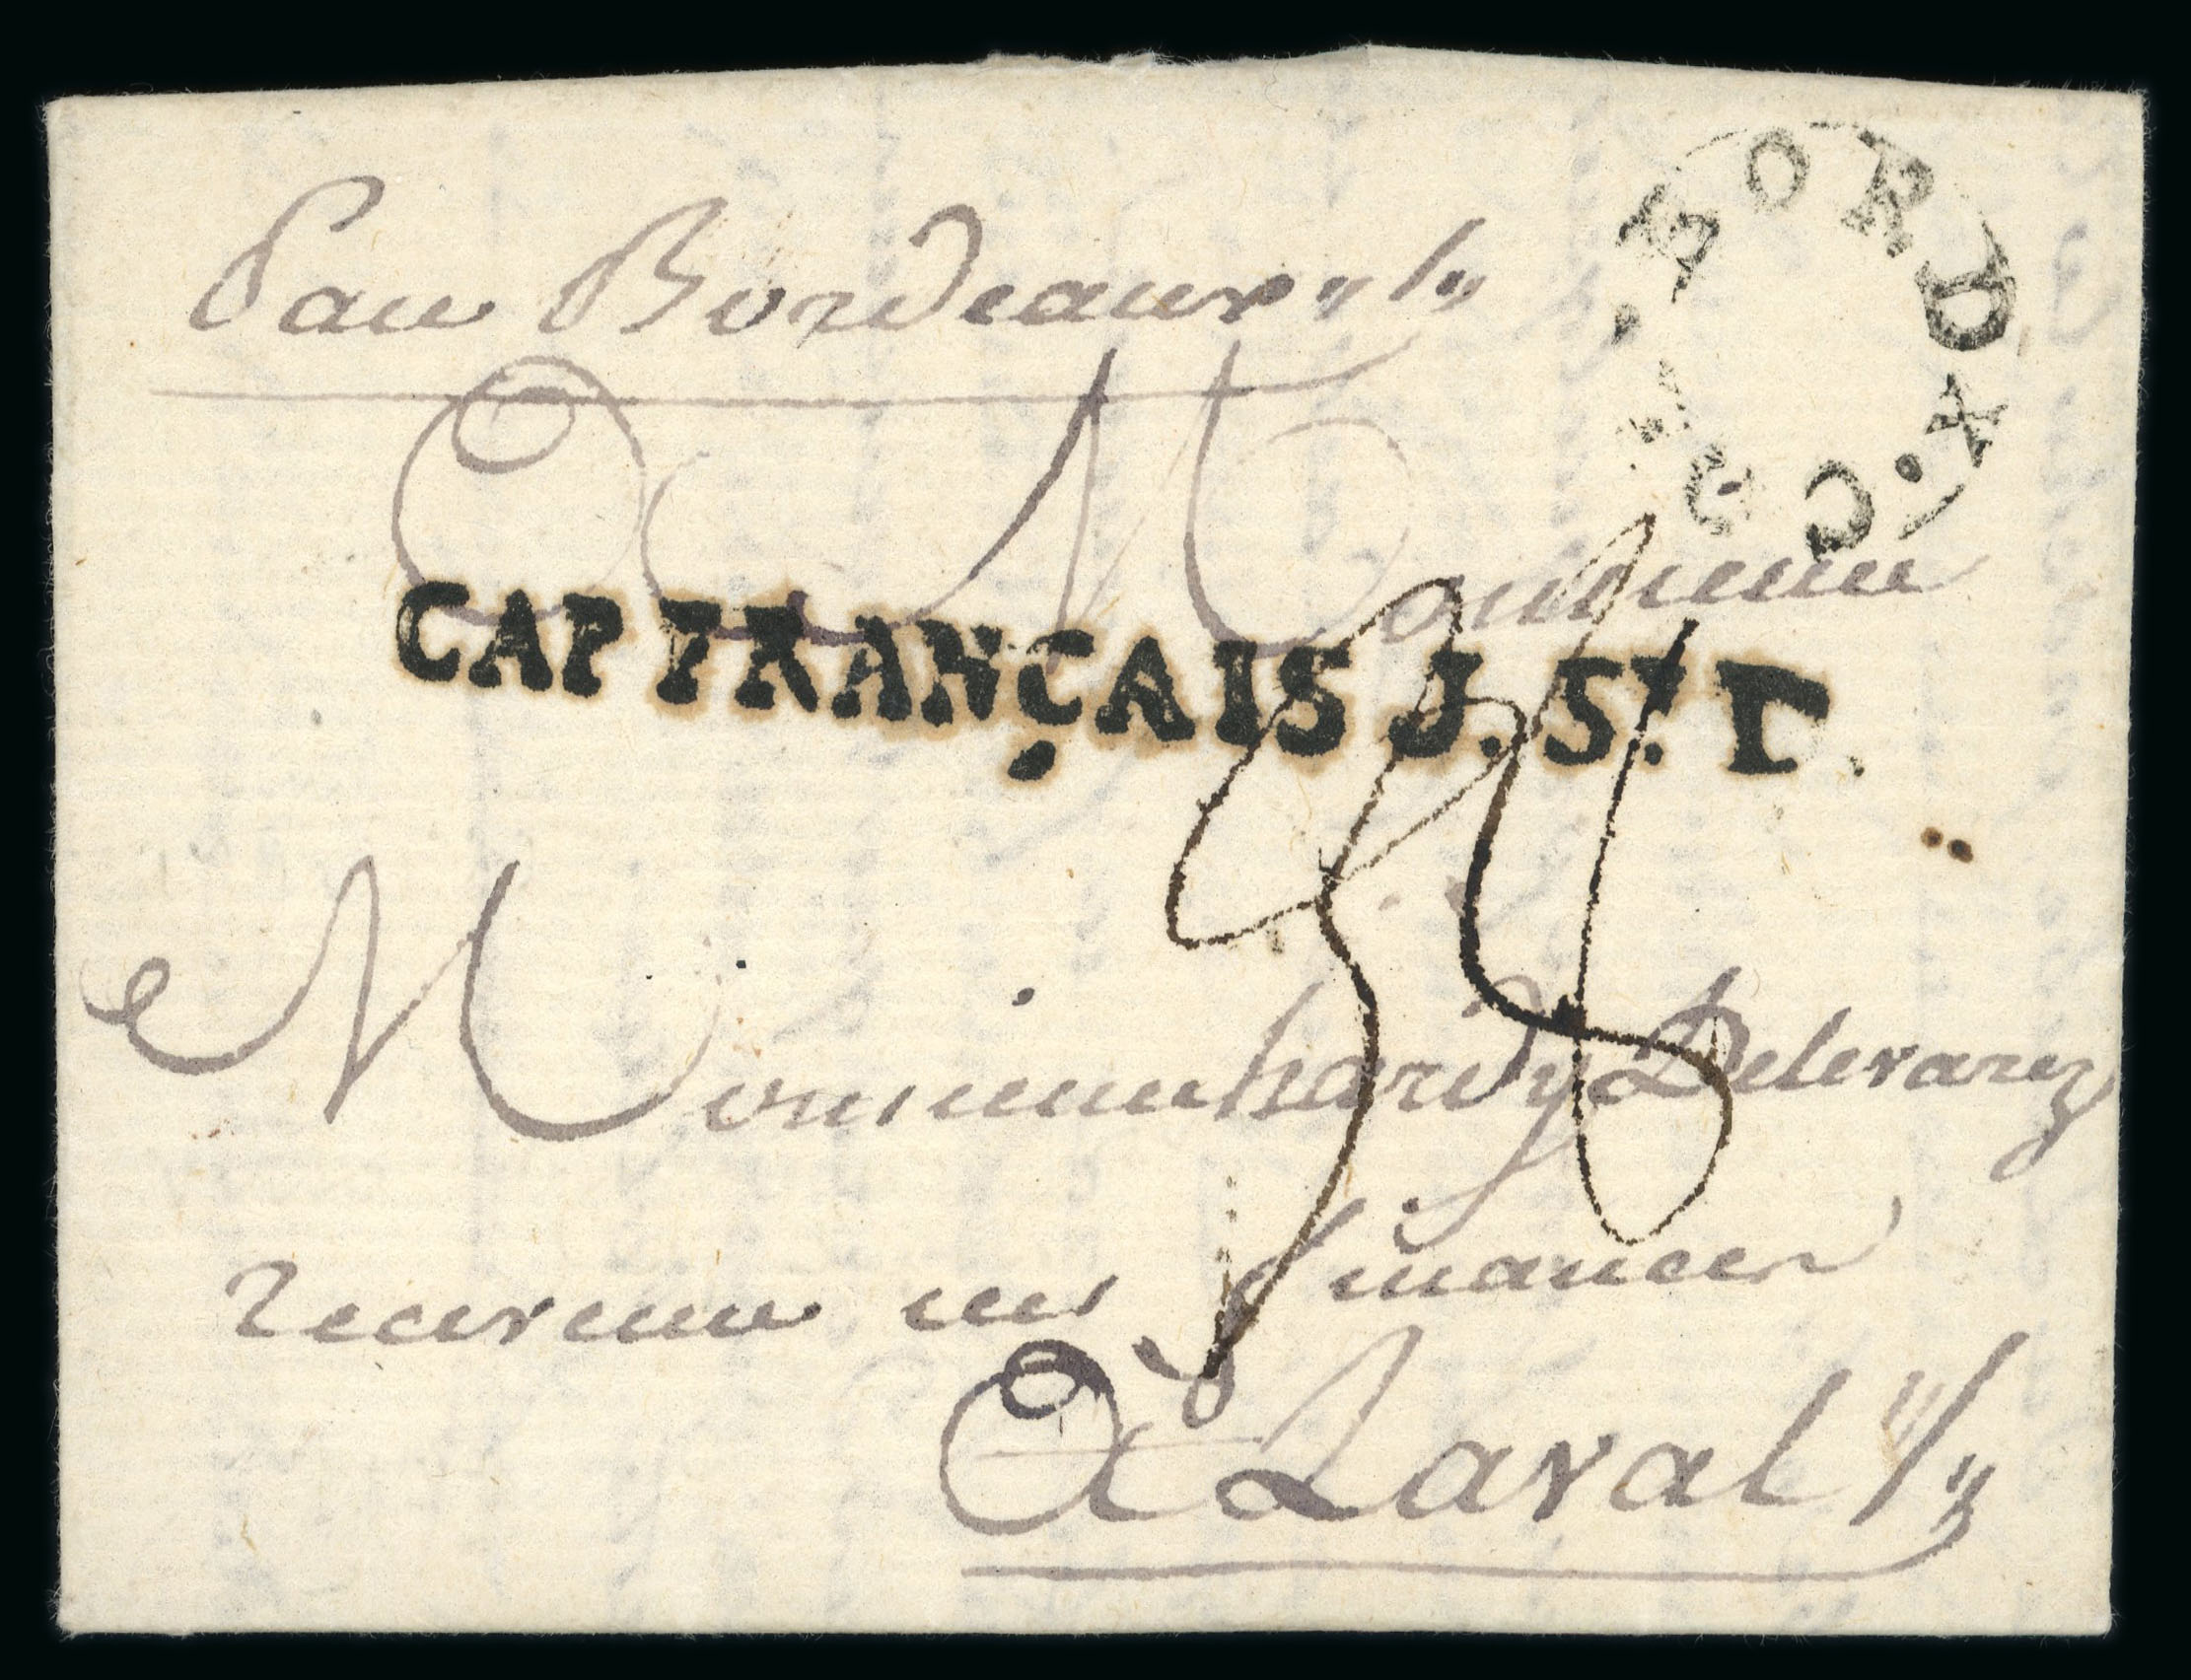 Par Bordeaux
BORDX. COL
A Monsieur
CAP FRANÇAIS J. St. D.
Monsieur hardy Delevarez
receveur des finances
A Laval